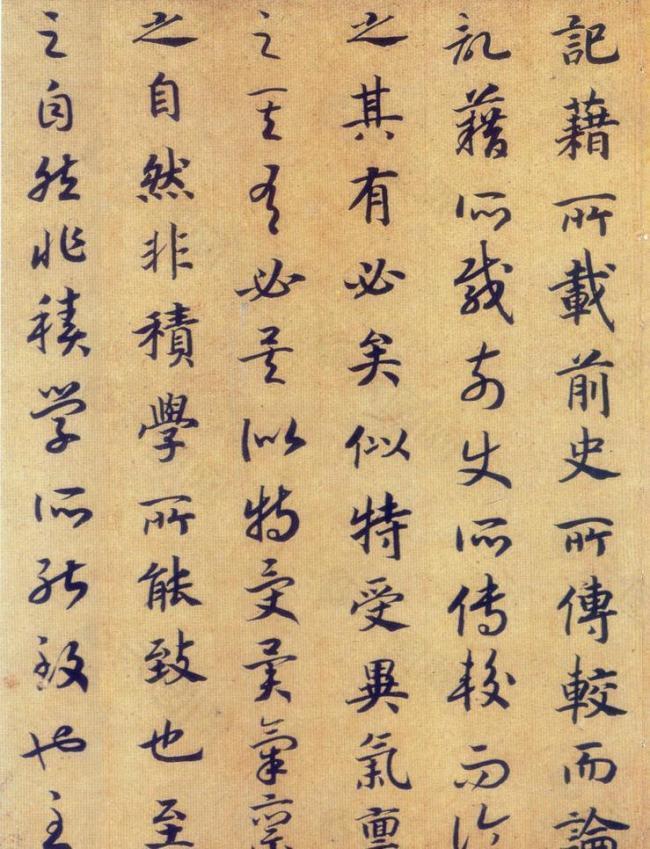 記藉所載前史所傳較而論
記藉所載前史所傳較而論
之其有必矣似特受異氣稟
之其有必矣似特受異氣稟
之自然非積學所能致也至
之自然非積學所能致也至